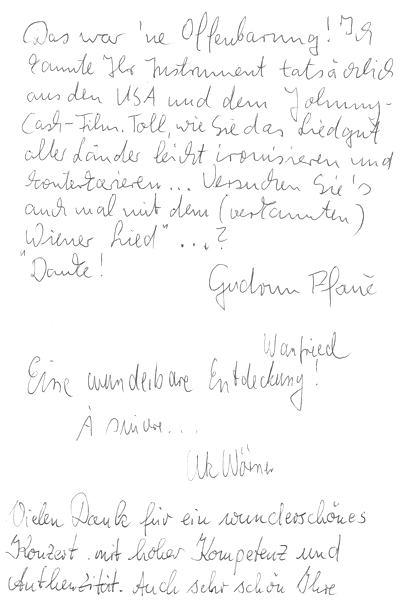 Das war 'ne Offenbarung! Ich
kannte Ihr Instrument tatsächlich
aus den USA und dem Johnny-
Cash-Film. Toll, wie Sie das Liedgut
aller Länder leicht ironisieren und
konterkarieren... Versuchen Sie's
auch mal mit dem (verkannten)
"Wiener Lied"...?
Danke!
Gudrun
Wanfried
Eine wunderbare Entdeckung!
À suivre...
Wörner
Vielen Dank für ein wunderschönes
Konzert mit hoher Kompetenz und
Authenzität. Auch sehr schön Ihre